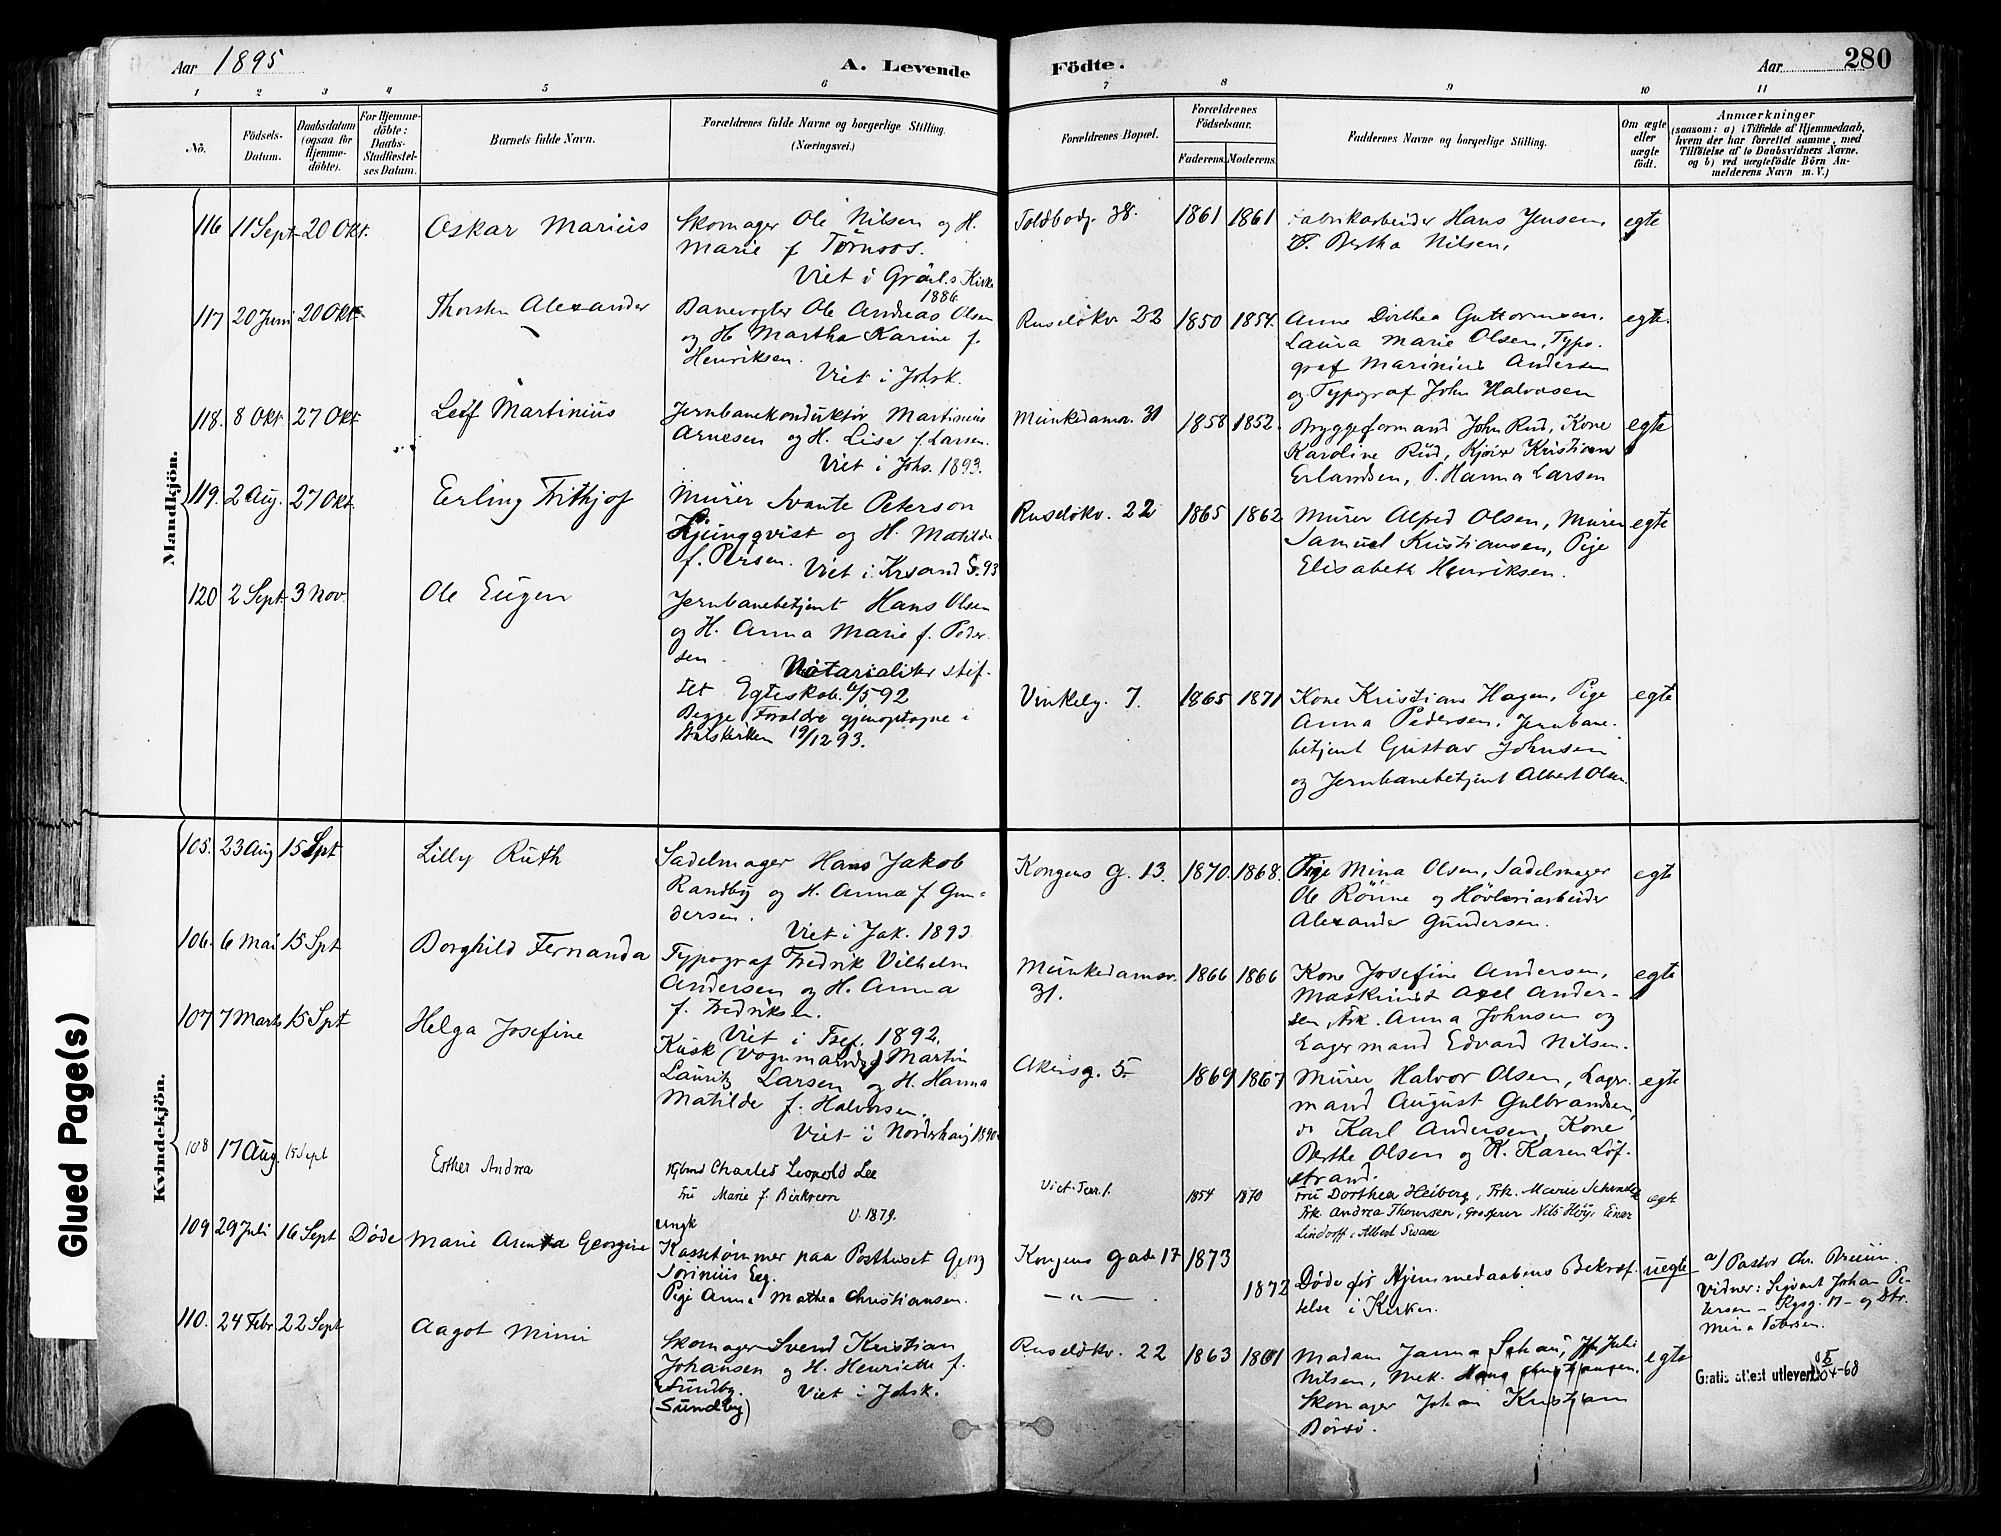 Aar 1895
A. Levende
Födte.
Aar
280
1 2 3 4 5 6 7 8 9 10 11
No.
Födsels-
Datum.
Daabsdatum
(ogsaa for
Hjemme-
döbte).
For Hjemme-
döbte:
Daabs-
Stadfæstel-
ses Datum.
Barnets fulde Navn.
Forældrenes fulde Navne og borgerlige Stilling.
(Næringsvei.)
Forældrenes Bopæl.
Forældrenes
Födselsaar.
Faderens.
Moderens.
Faddernes Navne og borgerlige Stilling.
Om ægte
eller
uægte
födt.
Anmærkninger
(saasom: a) i Tilfælde af Hjemmedaab,
hvem der har forrettet samme, med
Tilföielse af to Daabsvidners Navne,
og b) ved uægtefödte Börn An-
melderens Navn m. V.)
Mandkjön.
116 11 Sept 20 Okt. Oskar Marius
Skomager Ole Nilsen og H.
Marie f
Viet i Kirke
1886
Toldbodg. 38. 1861 1861
Fabrikarbeider Hans Jensen
P. Bertha Nilsen.
egte
117 20 Juni 20 Okt. Thorsten Alexander
Banevogter Ole Andreas Olsen
og H Martha Karine f.
Henriksen.
Viet i Johsk.
Ruseløkv. 22 1850 1854.
Anne Dorthea Guttormsen,
Laura Marie Olsen, Typo-
graf Marinius Andersen
og Typograf John Halvorsen
egte.
118. 8 Okt. 27 Okt Leif Martinius
Jernbanekonduktør Martinius
Arnesen og H. Lise f Larsen.
Viet i Johs. 1893.
Munkedamsv. 31 1858 1852.
Bryggeformand John Rud, Kone
Karoline Rud, Kristian
Erlandsen, P. Hanna Larsen
egte
119. 2 Aug. 27 Okt. Erling Frithjof
Murer Svante Peterson
Ljungqvist og H. Matilde
f. Persen. Viet i Krsand S. 93
Ruseløkv. 22 1865 1862
Murer Alfred Olsen, Murer
Samuel Kristiansen, Pige
Elisabeth Henriksen.
egte
120 2 Sept. 3 Nov. Ole Eugen
Jernbanebetjent Hans Olsen
og H. Anna Marie f. Peder-
sen. Notarialiter stif-
tet Egteskab 6/5 92
Begge Forældre gjenoptagne i
Statskirken 19/12 93.
Vinkelg. 7. 1865 1871
Kone Kristiane Hagen, Pige
Anna Pedersen, Jernbane-
betjent Gustav Johnsen
og Jernbanebetjent Albert Olsen.
egte
Kvindekjön.
105. 23 Aug 15 Sept Lilly Ruth
Sadelmager Hans Jakob
Randby og H. Anna f Gun-
dersen.
Viet i Jak. 1893.
Kongens G. 13. 1870. 1868.
Pige Mina Olsen, Sadelmager
Ole Rönne og Hövleriarbeider
Alexander Gundersen.
egte
106. 6 Mai 15 Spt Borghild Fernanda
Typograf Fredrik Vilhelm
Andersen og H. Anna
f. Fredriksen.
Viet i Tref. 1892.
Munkedamsv.
31. 1866 1866
Kone Josefine Andersen,
Maskinist Axel Ander-
sen, Frk. Anna Johnsen og
Lagermand Edvard Nilsen.
egte
107 7 Marts 15 Spt Helga Josefine
Kusk (Vognmandsg) Martin
Lauritz Larsen og H. Hanna
Matilde f. Halvorsen.
Viet i Norderhaug 1890
Akersg. 5 1869 1867
Murer Halvor Olsen, Lager-
mand August Gulbrandsen,
Karl Andersen, Kone
Berthe Olsen og K. Karen Löf-
strand.
egte
108 17 Aug. 15 Sept Esther Andrea
Charles Leopold Lee
Fru Marie f. Birkrem
V. 1879.
1854 1870
Fru Dorthea Heiberg, Frk. Marie
Frk. Andrea Thomsen, Grosserer Nils Höy, Einar
Lindorff, Albert Swane
egte
109 29 Juli 16 Sept Døde Marie Georgine
Ungk
Kassetømmer paa Posthuset Georg
Pige Anna Mathea Christiansen.
Kongens Gade 17 1873
— " — 1872
Døde før Hjemmedaabens Bekræf-
telse i Kirken.
uegte
a) Pastor Chr. Bruun
Vidner: Sigvart Johan Pe-
tersen – Kgsg. 17 – og Dtr.
Mina Petersen.
110. 24 Febr. 22 Sept Aagot Mimi
Skomager Svend Kristian
Johansen og H. Henriette f.
Sundby. Viet i Johsk.
(Sundby)
Ruseløkv. 22 1863 1861
Madam Janna Juli
Nilsen, Mek.
Skomager Johan Kristian
egte
Gratis attest utlevert
Glued Page(s)